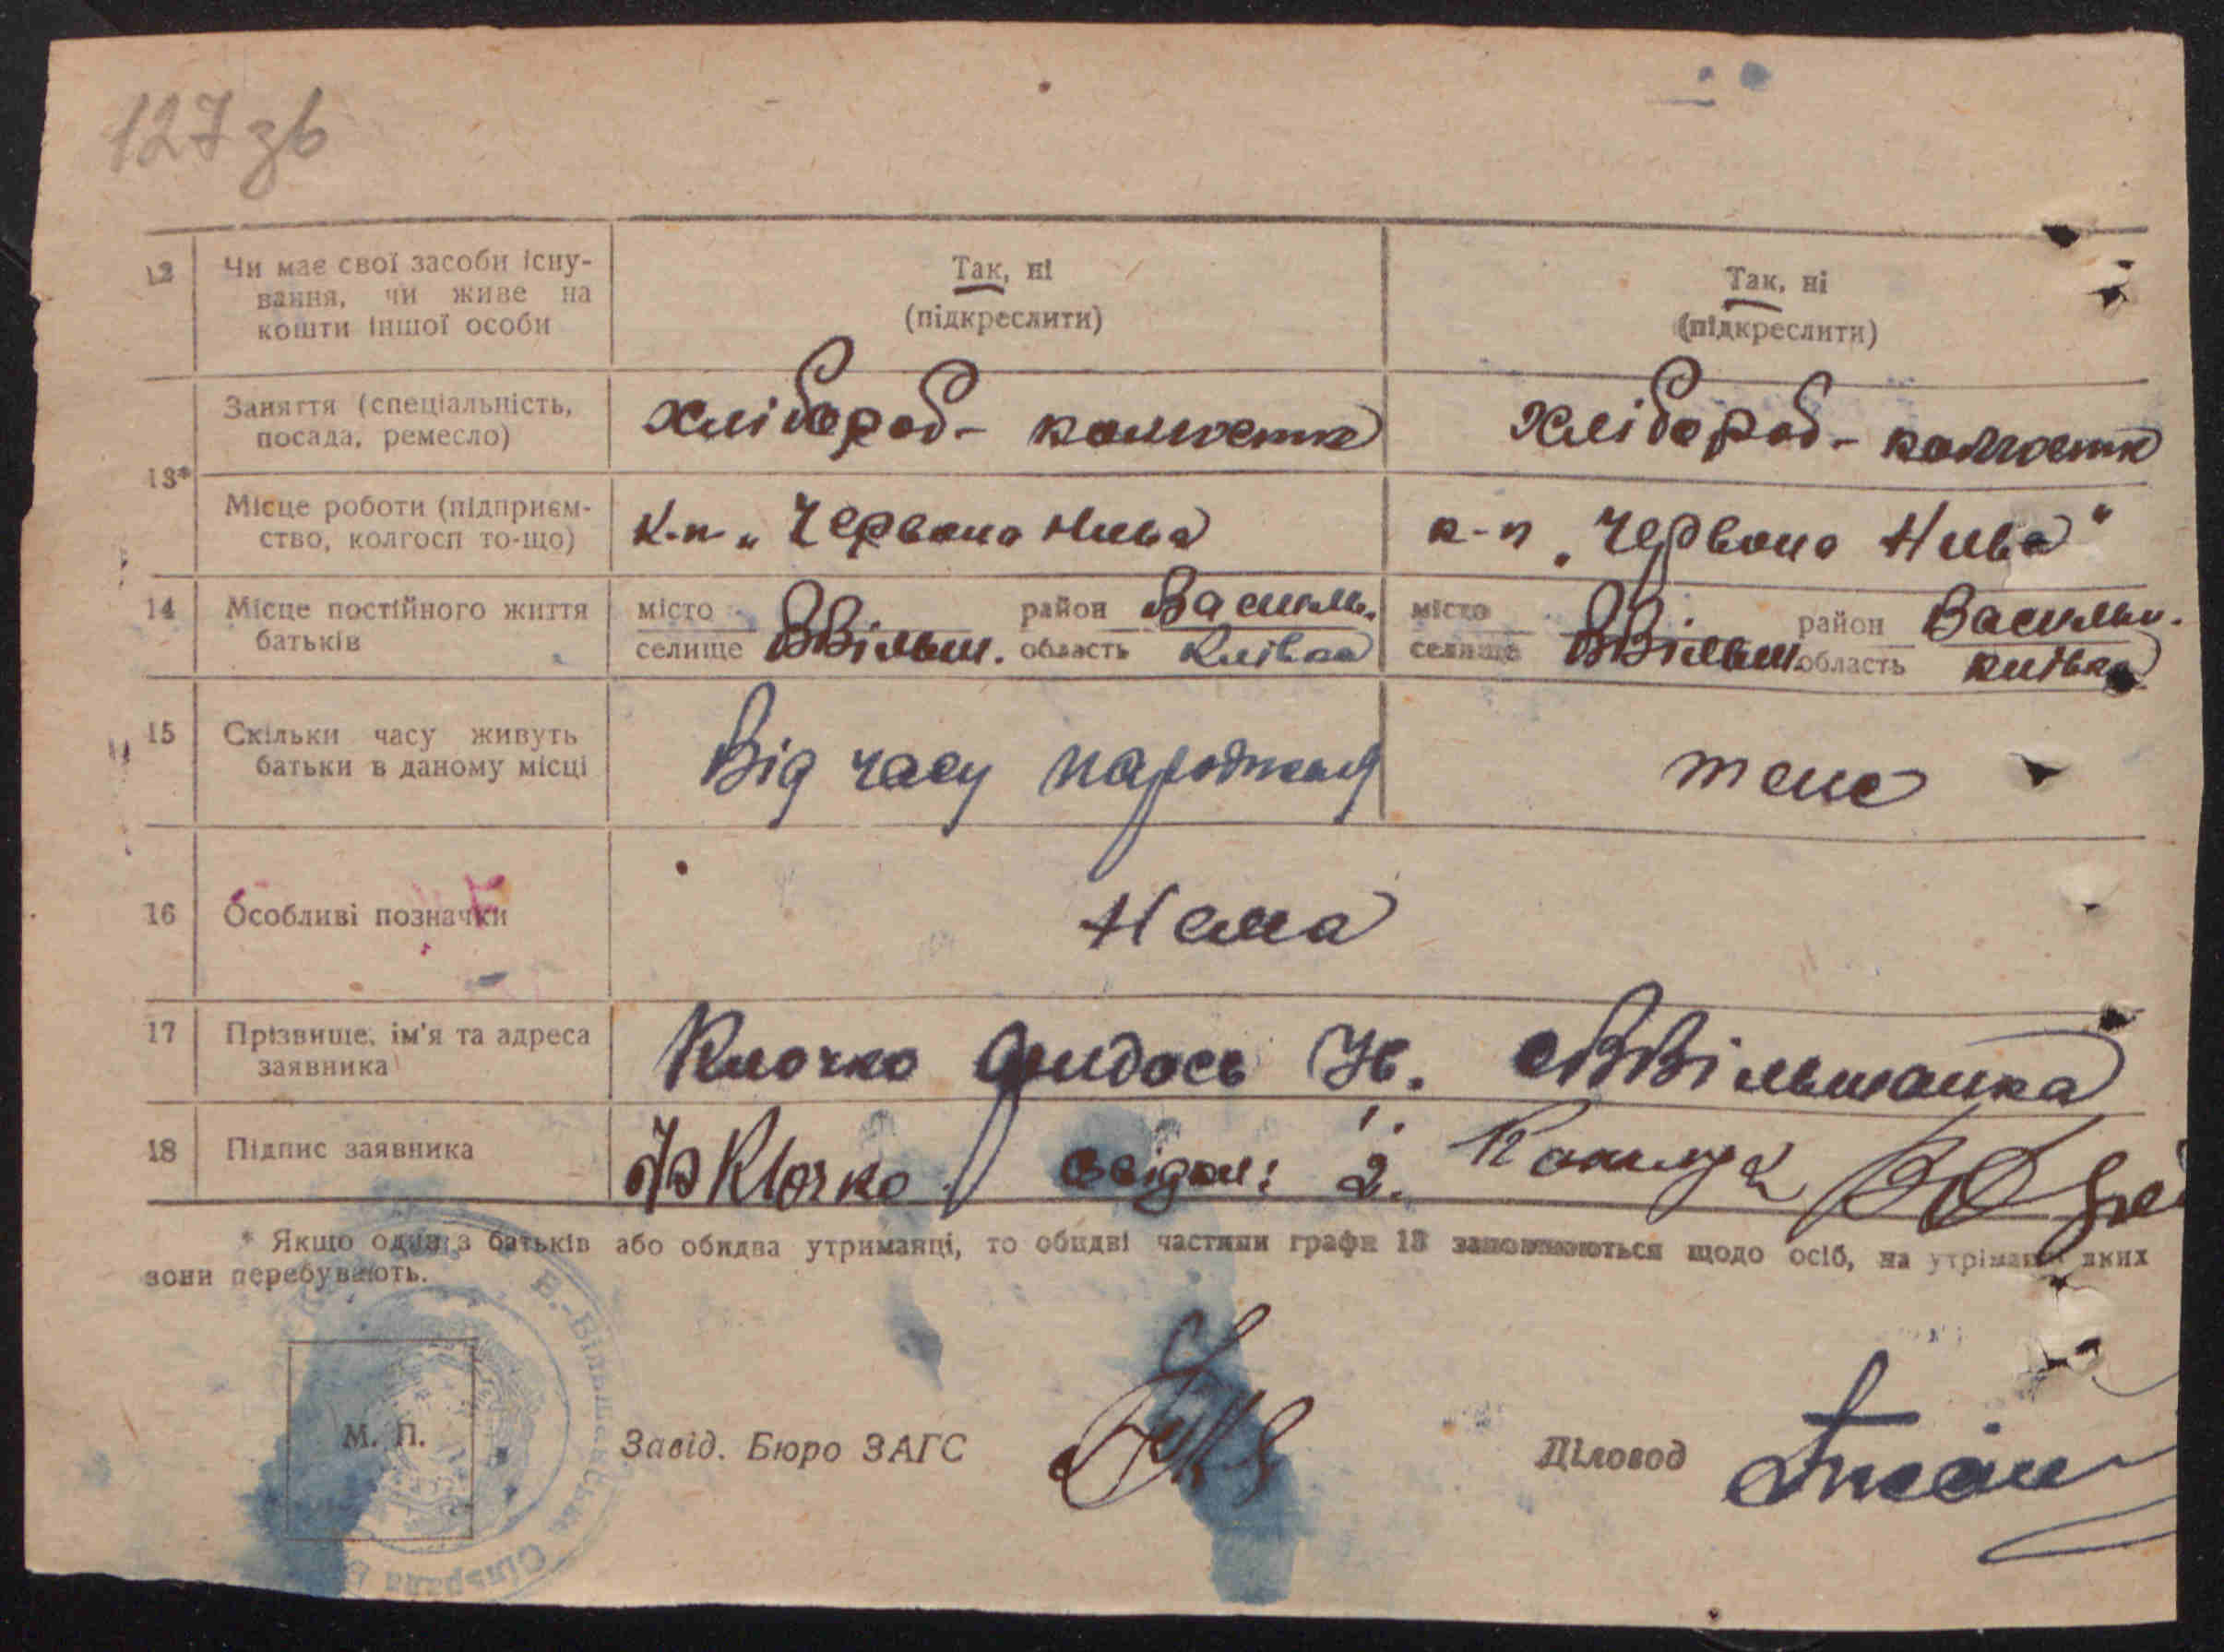 127 зв
12 Чи має свої засоби існу-
вання, чи живе на
кошти іншої особи
Так, ні
(підкреслити)
Так, ні
(підкреслити)
13*
Заняття (спеціальність,
посада, ремесло)
хлібороб- колгоспник
хлібороб- колгоспник
Місце роботи (підприєм-
ство, колгосп то-що)
к-п „Червона Нива
к-п „Червона Нива"
14 Місце постійного життя
батьків
місто
селище ВВільш.
район Василь.
область Київська
місто
селище ВВільш.
район Васильк.
область Київська
15 Скільки часу живуть
батьки в даному місці
Від часу народження
теж
16 Особливі позначки
Нема
17 Прізвище, ім'я та адреса
заявника
Клочко Фидось Ів. с ВВільшанка
18 Підпис заявника
Клочко свідки: 2.
* Якщо один з батьків або обидва утриманці, то обидві частини графи 13 заповнюються щодо осіб, на утриманні яких
вони перебувають.
В.-Вільшанська Сільрада
М. П.
Завід. Бюро ЗАГС
Діловод